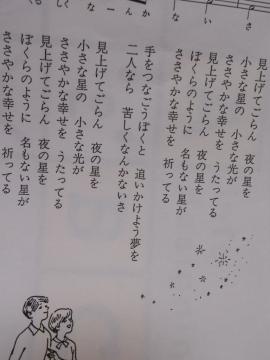 しく なーん か な い さ
見上げてごらん 夜の星を
小さな星の 小さな光が
ささやかな幸せを うたってる
見上げてごらん 夜の星を
ぼくらのように 名もない星が
ささやかな幸せを 祈ってる
手をつなごうぼくと 追いかけよう夢を
二人なら 苦しくなんかないさ
見上げてごらん 夜の星を
小さな星の 小さな光が
ささやかな幸せを うたってる
見上げてごらん 夜の星を
ぼくらのように 名もない星が
ささやかな幸せを 祈ってる